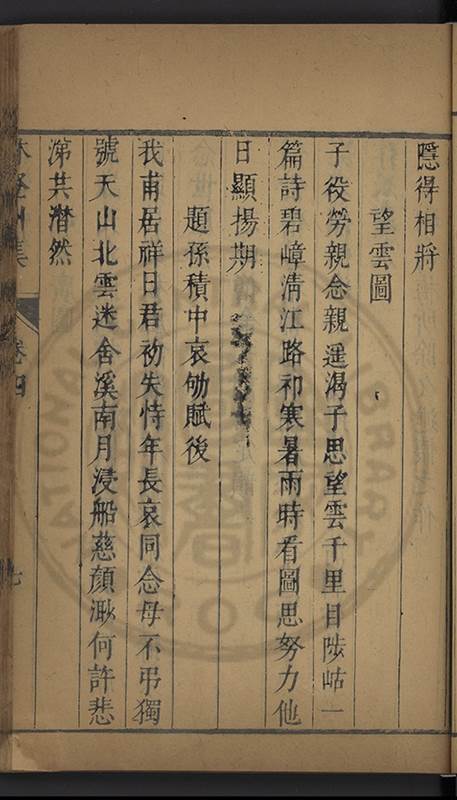 隱得相將
望雲圖
子役勞親念親遥渴子思望雲千里目陟岵一
篇詩碧嶂清江路祁寒暑雨時看圖思努力他
日顯揚期
題孫積中哀劬賦後
我甫居祥日君初失恃年長哀同念母不弔獨
號天山北雲迷舍溪南月浸船慈顔溵何許悲
涕共潸然
卷四
七